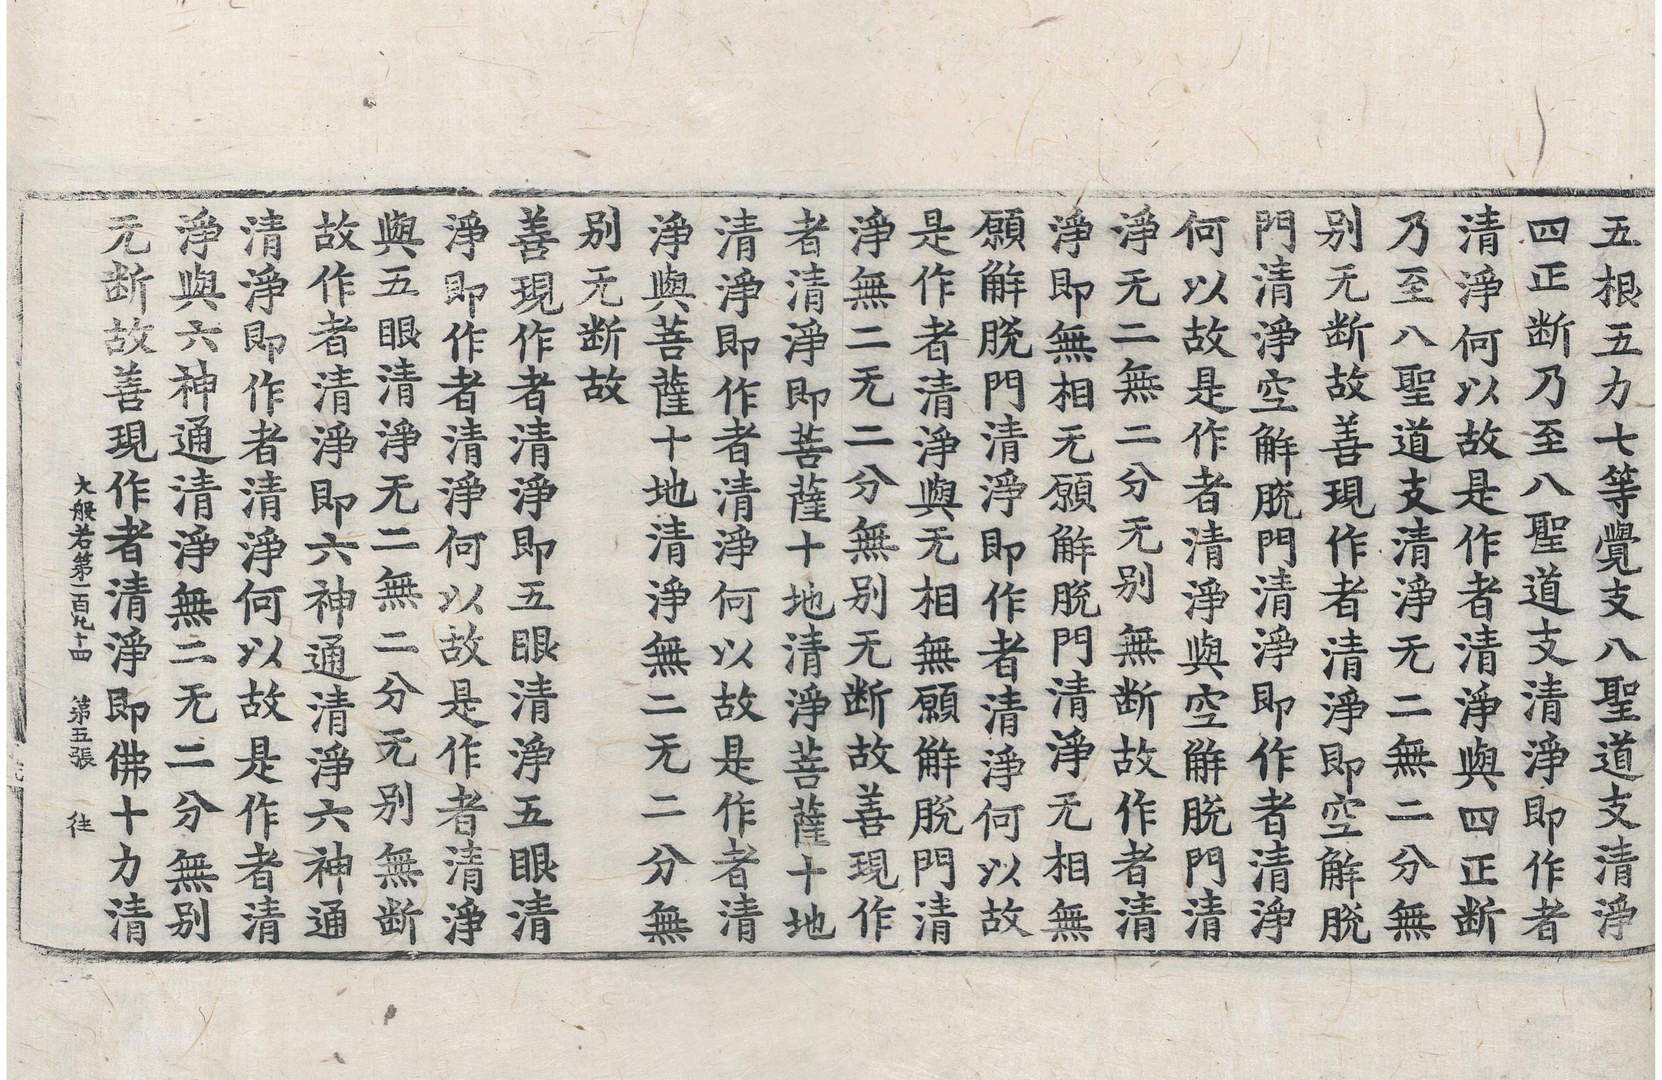 五根五力七等覺支八聖道支清淨
四正断乃至八聖道支清淨即作者
清淨何以故是作者清淨與四正断
乃至八聖道支清淨无二無二分無
别无断故善現作者清淨即空解脱
門清淨空解脱門清淨即作者清淨
何以故是作者清淨與空解脱門清
淨无二無二分无别無断故作者清
淨即無相无願解脱門清淨无相無
願解脱門清淨即作者清淨何以故
是作者清淨與无相無願解脱門清
淨無二无二分無别无断故善現作
者清淨即菩薩十地清淨菩薩十地
清淨即作者清淨何以故是作者清
淨與菩薩十地清淨無二无二分無
别无断故
善現作者清淨即五眼清淨五眼清
淨即作者清淨何以故是作者清淨
與五眼清淨无二無二分无别無断
故作者清淨即六神通清淨六神通
清淨即作者清淨何以故是作者清
淨與六神通清淨無二无二分無别
无断故善現作者清淨即佛十力清
大般若第一百九十四 第五張 往